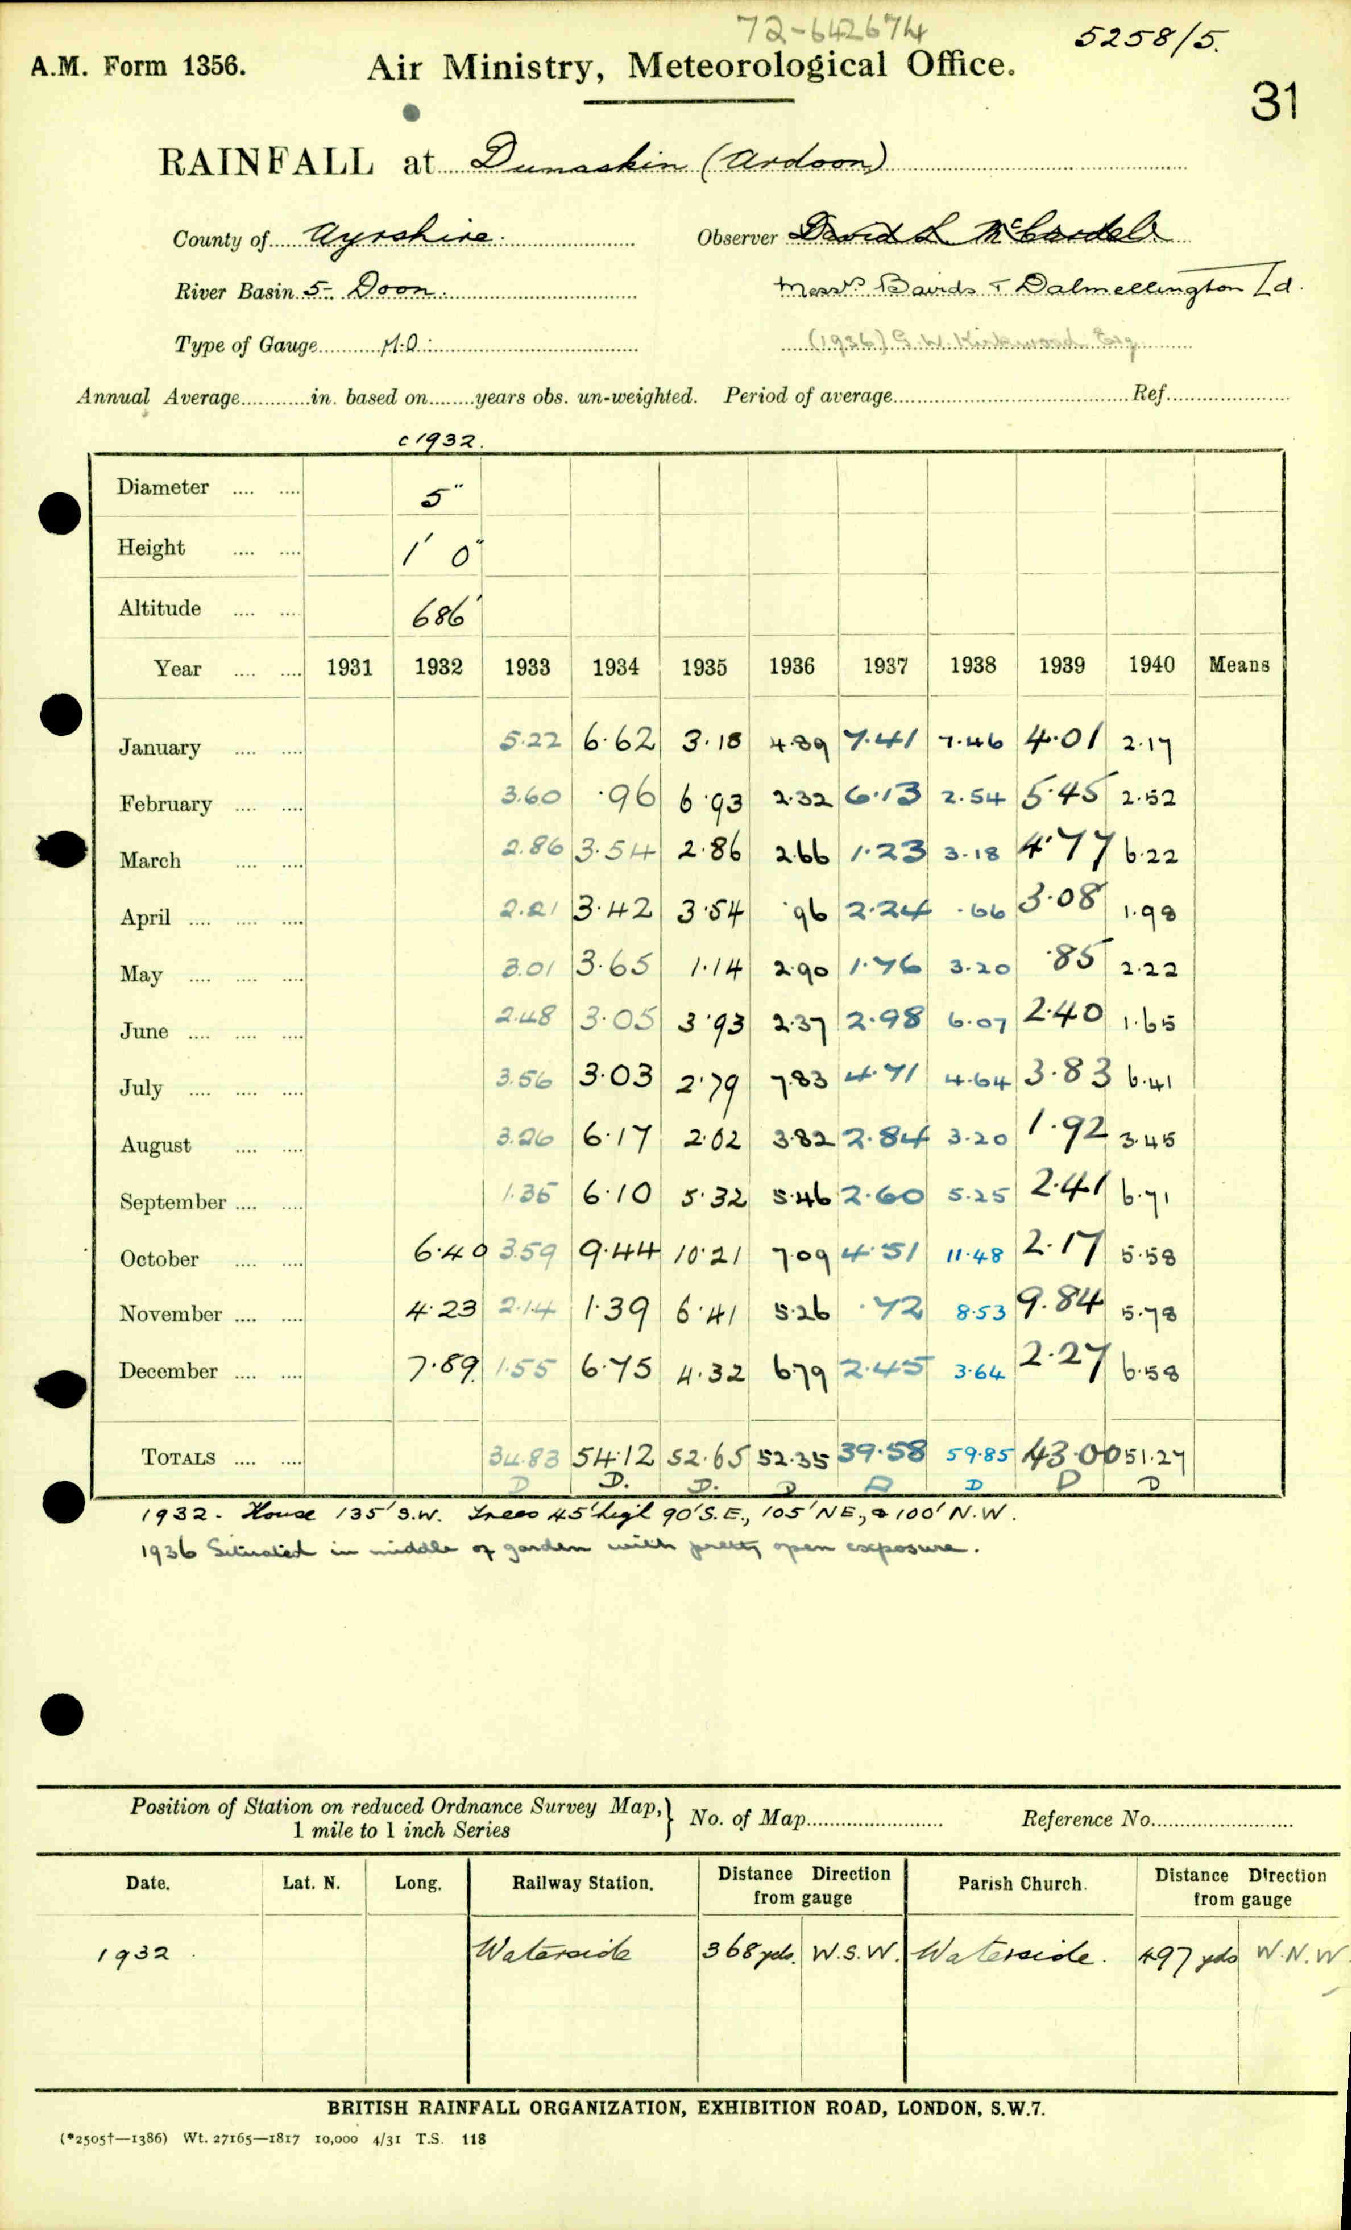 72-642674
5258/5.
A.M. Form 1356. Air Ministry, Meteorological Office.
31
RAINFALL at Dunaskin (Ardoon)
County of Ayrshire. Observer David L
River Basin 5-. Doon. Messrs Bairds & Dalmellington Ld.
Type of Gauge M.O: (1936) G.W. Kirkwood Esq
Annual Average in. based on years obs. un-weighted. Period of average Ref.
c 1932.
Diameter .... .... 5"
Height .... .... 1' 0"
Altitude .... .... 686'
Year .... .... 1931 1932 1933 1934 1935 1936 1937 1938 1939 1940 Means
January .... .... 5.22 6.62 3.18 4.89 7.41 7.46 4.01 2.17
February .... .... 3.60 .96 6.93 2.32 6.13 2.54 5.45 2.52
March .... .... 2.86 3.54 2.86 2.66 1.23 3.18 4.77 6.22
April .... .... .... 2.21 3.42 3.54 .96 2.24 .66 3.08 1.98
May .... .... .... 3.01 3.65 1.14 2.90 1.76 3.20 .85 2.22
June .... .... .... 2.48 3.05 3.93 2.37 2.98 6.07 2.40 1.65
July .... .... .... 3.56 3.03 2.79 7.83 4.71 4.64 3.83 6.41
August .... .... 3.26 6.17 2.02 3.82 2.84 3.20 1.92 3.45
September .... .... 1.35 6.10 5.32 5.46 2.60 5.25 2.41 6.71
October .... .... 6.40 3.59 9.44 10.21 7.09 4.51 11.48 2.17 5.58
November .... .... 4.23 2.14 1.39 6.41 5.26 .72 8.53 9.84 5.78
December .... .... 7.89 1.55 6.75 4.32 6.79 2.45 3.64 2.27 6.58
TOTALS .... .... 34.83 54.12 52.65 52.35 39.58 59.85 43.00 51.27
D D. D. D D D D D
1932. House 135' S.W. Trees 45' high 90' S.E., 105' NE, & 100' N.W.
1936 Situated in middle of garden with pretty open exposure.
Position of Station on reduced Ordnance Survey Map,} No. of Map Reference No.
1 mile to 1 inch Series
Date. Lat. N. Long. Railway Station. Distance Direction from gauge Parish Church. Distance Direction from gauge
1932. Waterside 368 yds. W.S.W. Waterside. 497 yds W.N.W
BRITISH RAINFALL ORGANIZATION, EXHIBITION ROAD, LONDON, S.W.7.
(*2505†—1386) Wt. 27165—1817 10,000 4/31 T.S. 118